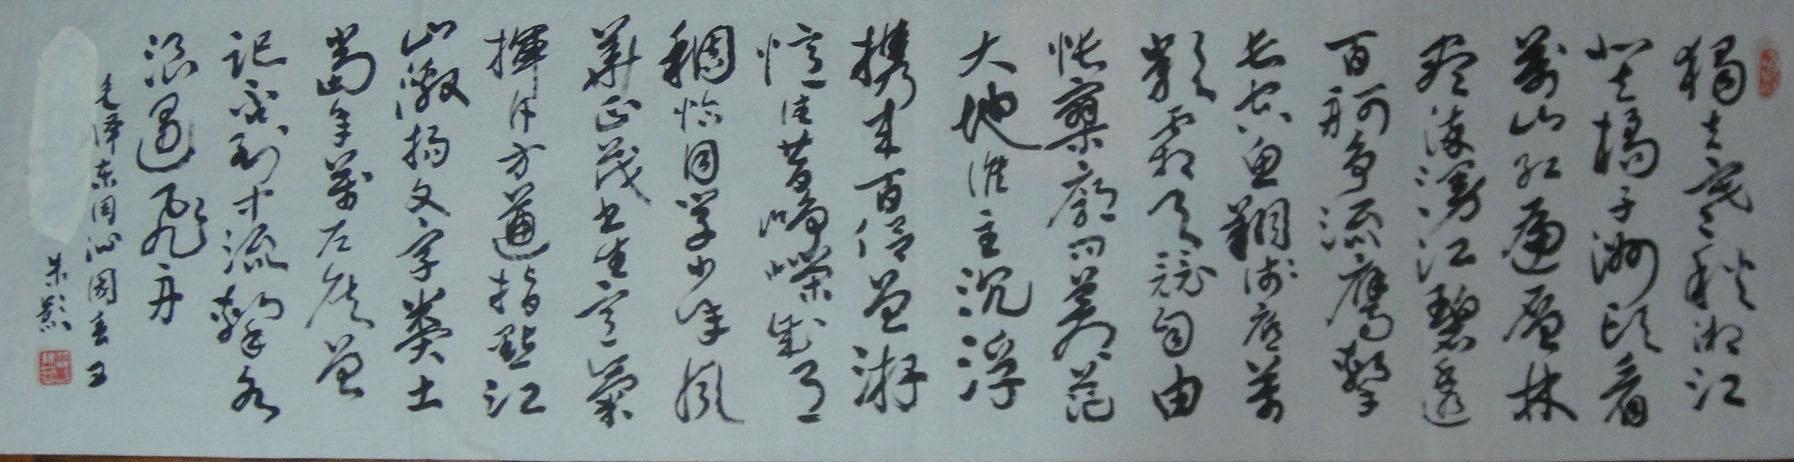 獨立寒秋湘江
北去橘子洲头看
萬山红遍层林
尽染漫江碧透
百舸争流鹰擊
长空鱼翔浅底万
類霜天競自由
怅寥廓问苍茫
大地谁主沉浮
携来百侣曾游
忆往昔峥嵘岁月
稠恰同学少年风
華正茂书生意氣
揮斥方遒指點江
山激扬文字粪土
當年萬户侯曾
记否到中流擊水
浪遏飛舟
毛泽东词沁園春
朱影